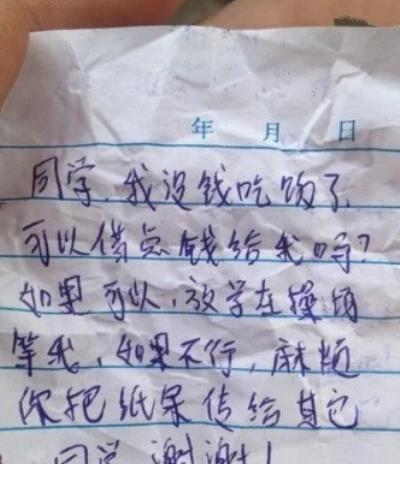 年 月 日
同学,我没钱吃饭了
可以借点钱给我吗?
如果可以,放学在操场
等我,如果不行,麻烦
你把纸条传给其它
同学,谢谢!